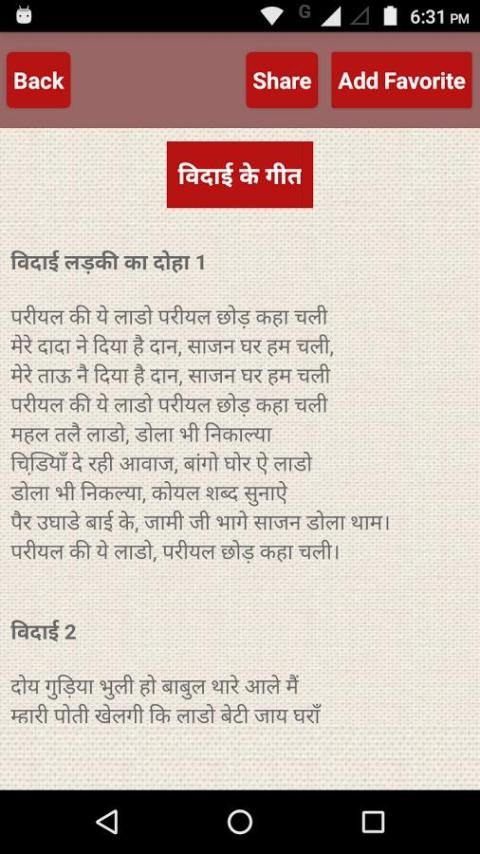 G 6:31 PM
Back Share Add Favorite
विदाई के गीत
विदाई लड़की का दोहा 1
परीयल की ये लाडो परीयल छोड़ कहा चली
मेरे दादा ने दिया है दान, साजन घर हम चली,
मेरे ताऊ नै दिया है दान, साजन घर हम चली
परीयल की ये लाडो परीयल छोड़ कहा चली
महल तलै लाडो, डोला भी निकाल्या
चिडि़याँ दे रही आवाज, बांगो घोर ऐ लाडो
डोला भी निकल्या, कोयल शब्द सुनाऐ
पैर उघाडे बाई के, जामी जी भागे साजन डोला थाम।
परीयल की ये लाडो, परीयल छोड़ कहा चली।
विदाई 2
दोय गुड़िया भुली हो बाबुल थारे आले मैं
म्हारी पोती खेलगी कि लाडो बेटी जाय घराँ